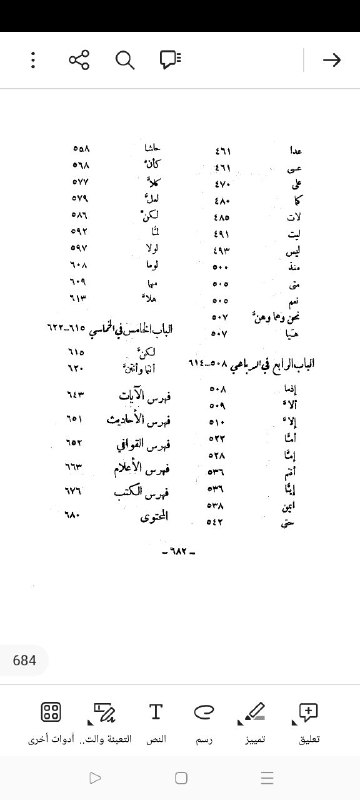 عدا ٤٦١
عسى ٤٦١
على ٤٧٠
كما ٤٨٠
لات ٤٨٥
ليت ٤٩١
ليس ٤٩٣
منذ ٥٠٠
متى ٥٠٥
نعم ٥٠٥
نحن وهما وهنَّ ٥٠٧
هيّا ٥٠٧
الباب الرابع في الرباعي ٥٠٨ــ٦١٤
إذما ٥٠٨
ألاّ ٥٠٩
إلاّ ٥١٠
أمّا ٥٢٢
إمّا ٥٢٨
أنتم ٥٣٦
إيّا ٥٣٦
ايمن ٥٣٨
حتى ٥٤٢
حاشا ٥٥٨
كأنّ ٥٦٨
كلاَّ ٥٧٧
لعلّ ٥٧٩
لكنْ ٥٨٦
لمّا ٥٩٢
لولا ٥٩٧
لوما ٦٠٨
مهما ٦٠٩
هلاَّ ٦١٣
الباب الخامس في الخماسي ٦١٥ــ٦٢٢
لكنّ ٦١٥
أنتما وأنتنَّ ٦٢٠
فهرس الآيات ٦٤٣
فهرس الأحاديث ٦٥١
فهرس القوافي ٦٥٢
فهرس الأعلام ٦٦٣
فهرس الكتب ٦٧٦
المحتوى ٦٨٠
ــ ٦٨٢ ــ
684
تعليق
تمييز
رسم
النص
التعبئة والت..
أدوات أخرى